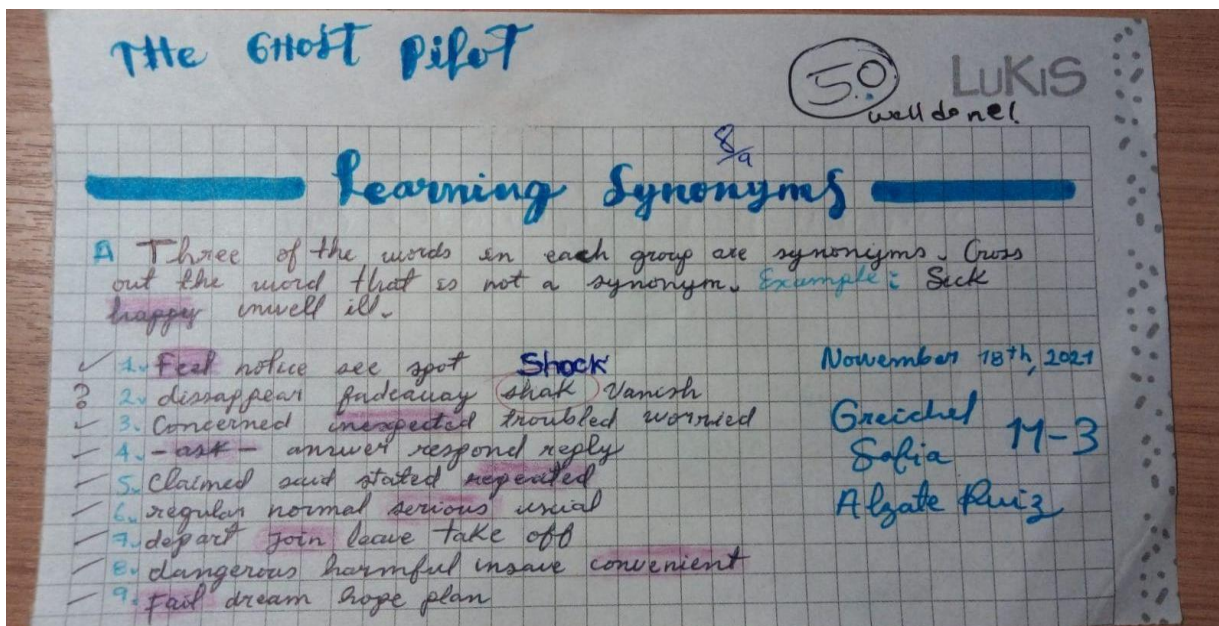 THe GHosT Pilot
5.0
LuKiS
well done!
8/9
Learning Synonyms
A Three of the words in each group are synonyms. Cross
out the word that is not a synonym. Example: Sick
happy unwell ill.
1. Feel notice see spot Shock
2. dissappear fadeaway shak Vanish
3. Concerned inexpected troubled worried
4. -ask- answer respond reply
5. Claimed said stated repeated
6. regular normal serious usual
7. depart join leave take off
8. dangerous harmful insave convenient
9. Fail dream hope plan
November 18th, 2021
Greichel
Sofia 11-3
Alzate Ruiz